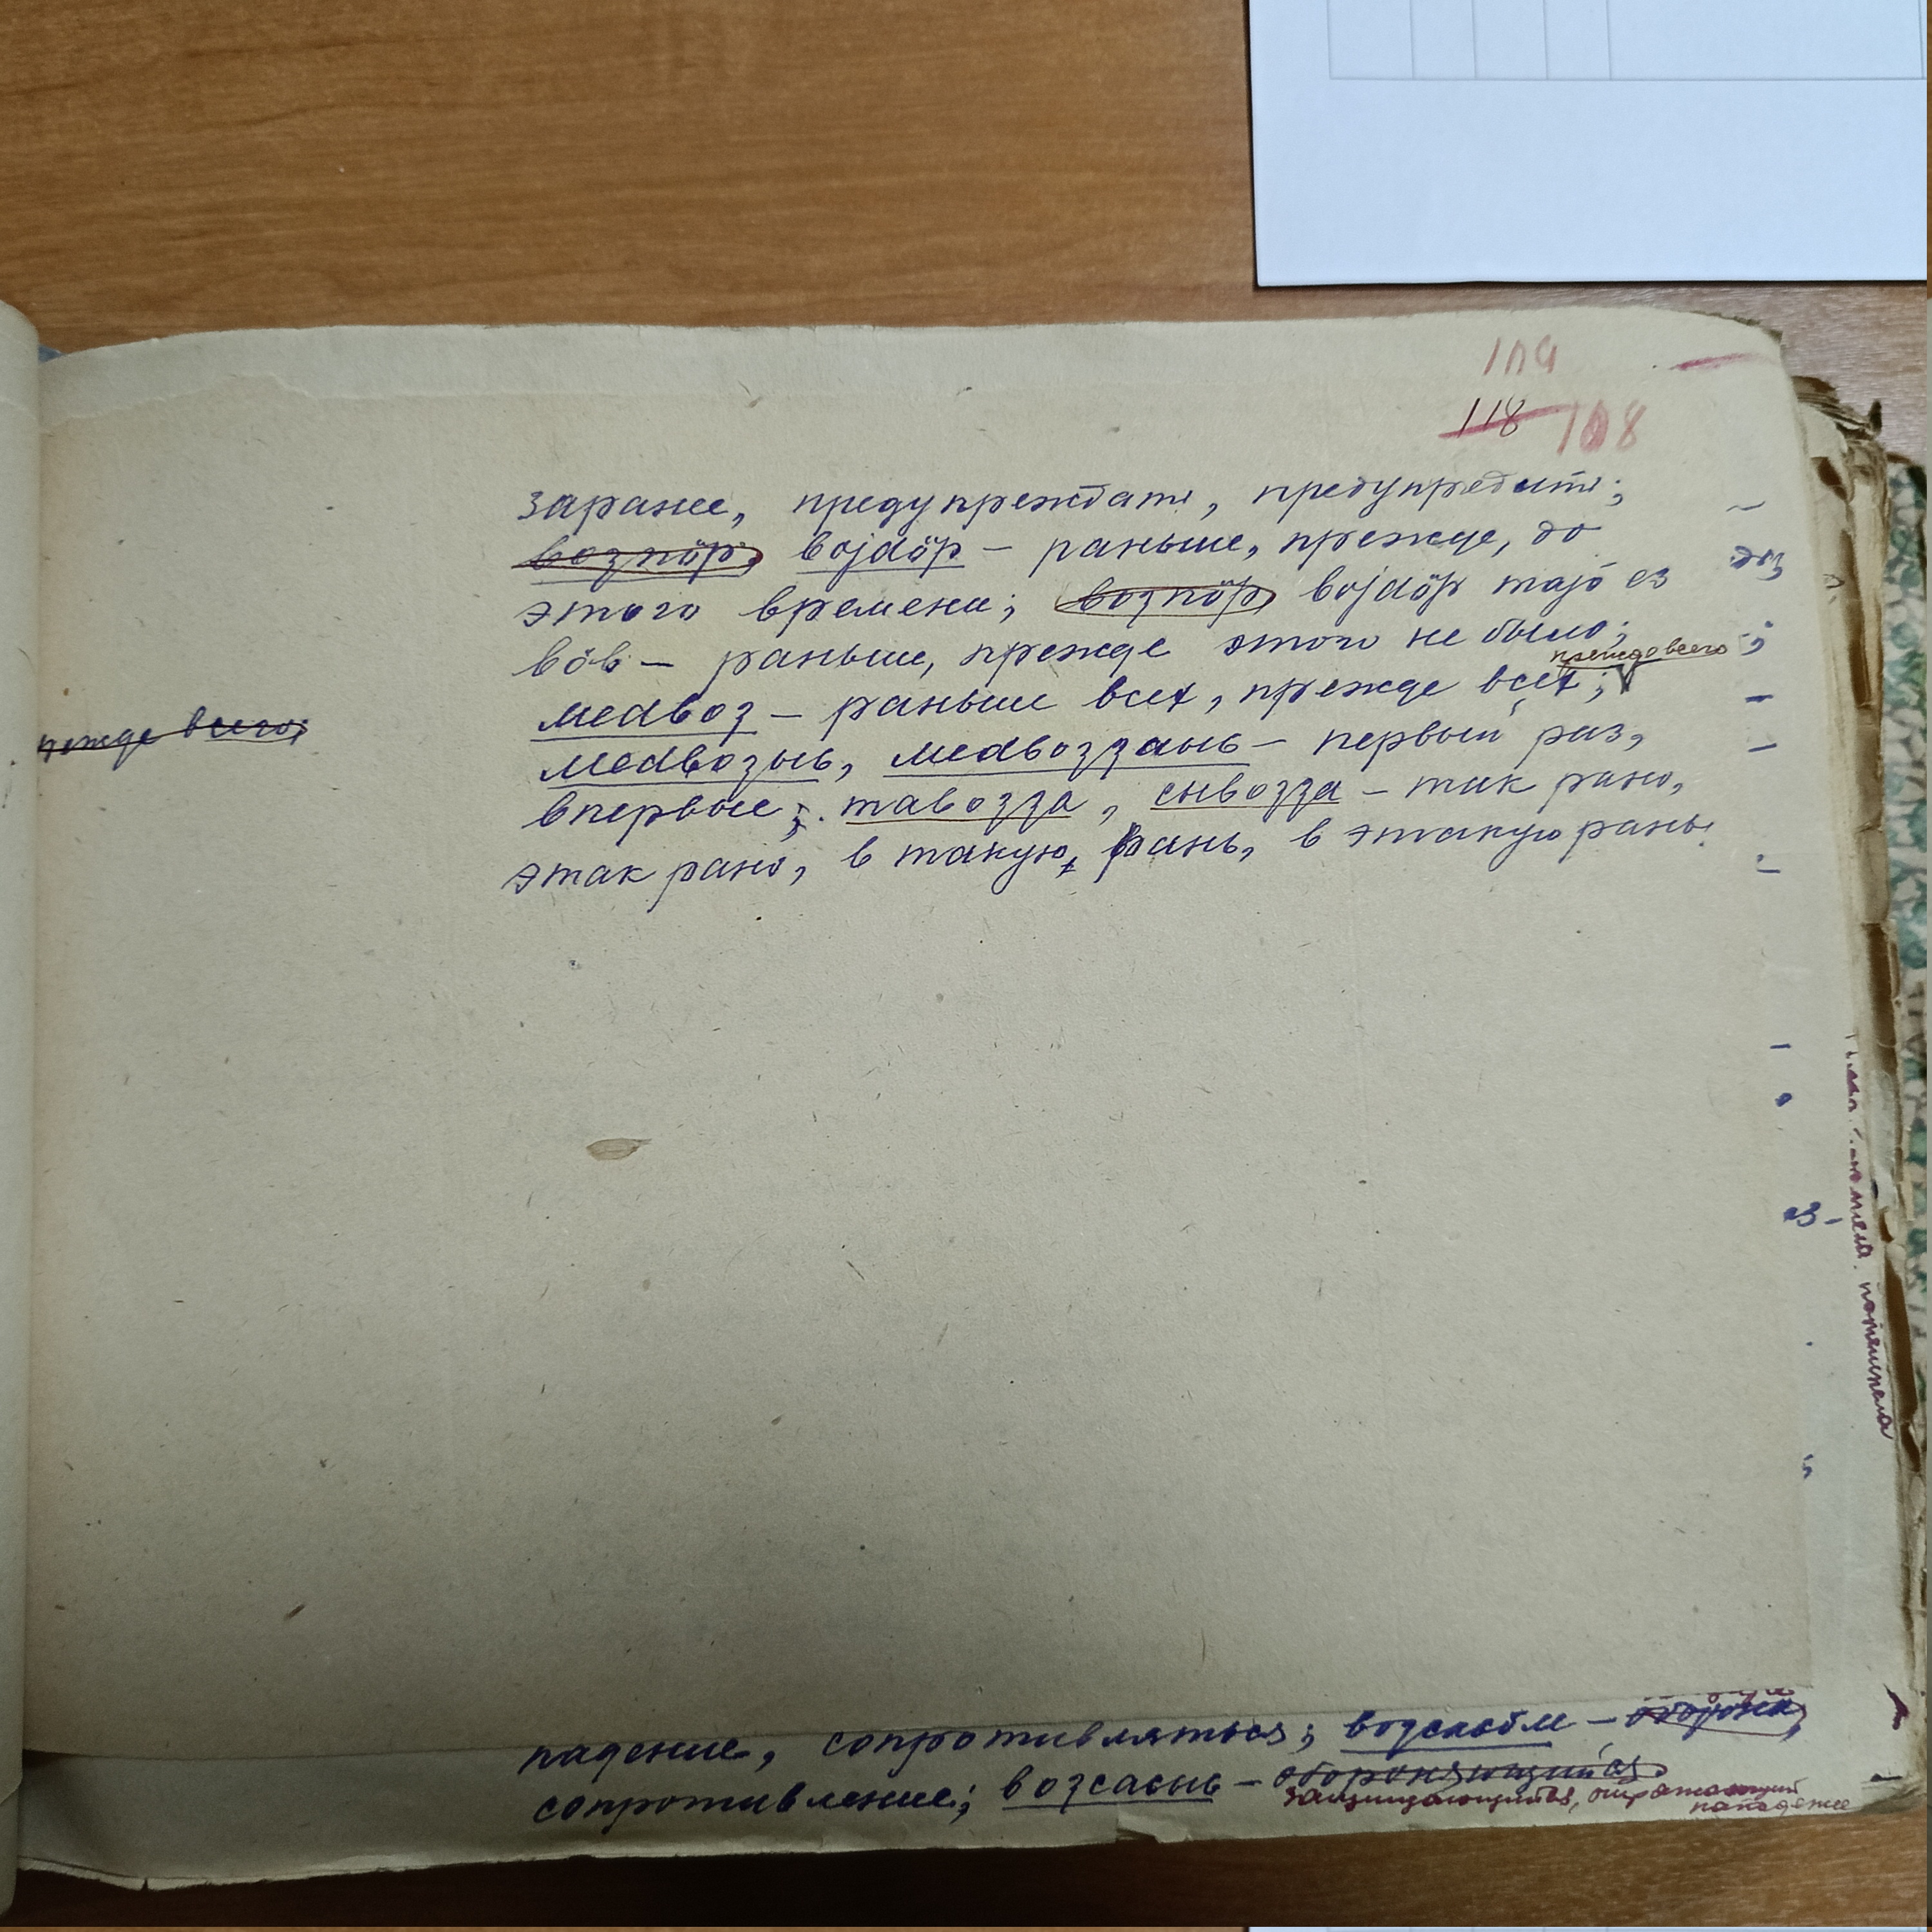 109
118 108
заранее, предупреждать, предупредить;
возпöр, војдöр – раньше, прежде, до
этого времени; возпöр војдöр тајö ез
вöв – раньше, прежде этого не было;
прежде всего
медвоз – раньше всех, прежде всех;
прежде всего;
медвозыс, медвоздзаыс – первый раз,
впервые; тавоззза, сывозза – так рано,
этак рано, в такую рань, в этакую рань
потемнела
падение, сопротивляться; водсасöм – оборона,
сопротивление; возсасыс – обороняющийся
защищающийся, отражающий
нападение